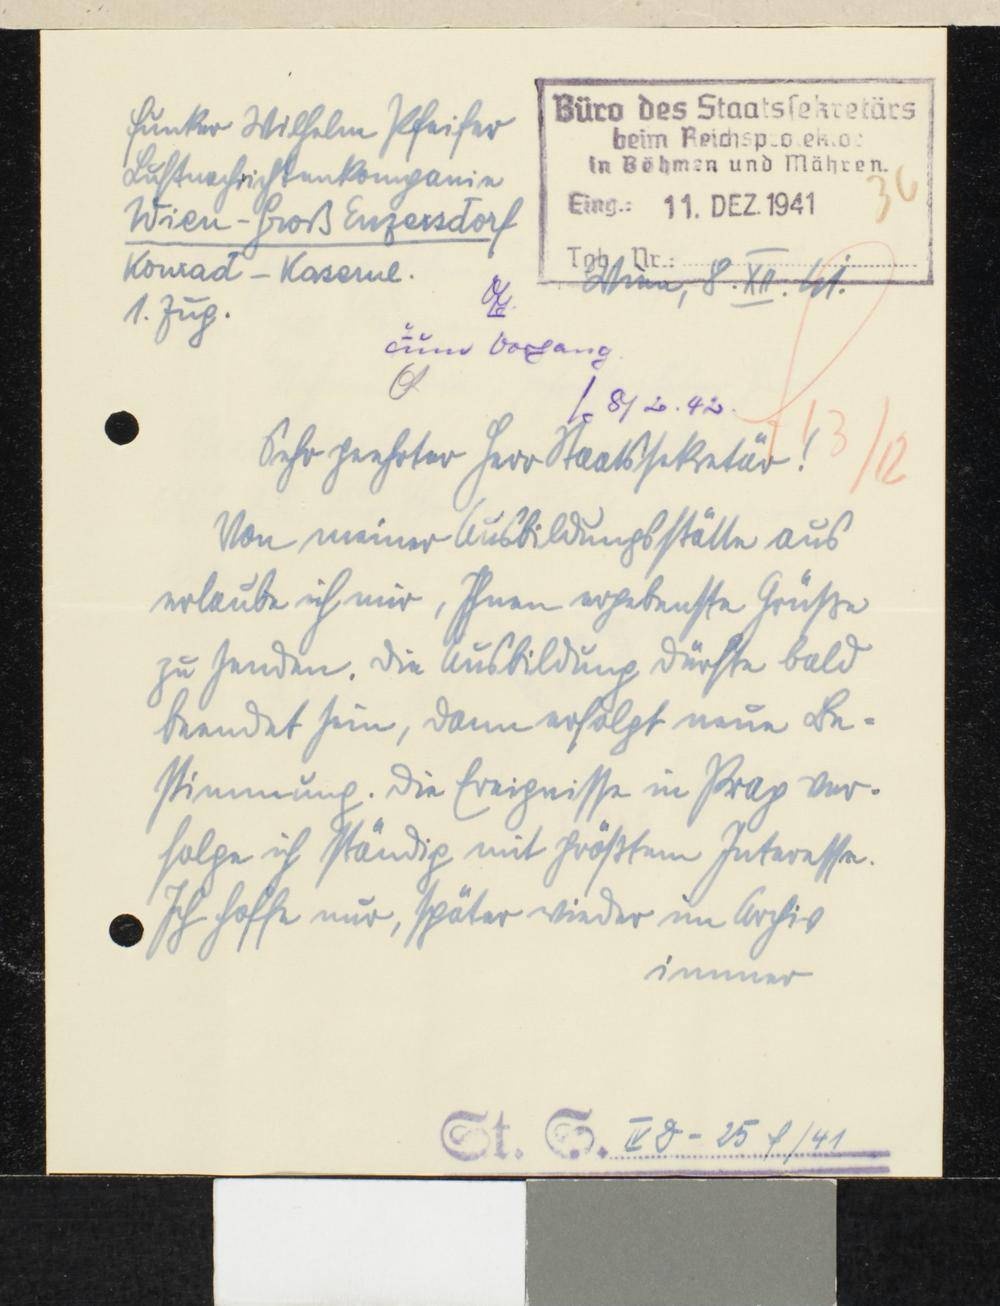 Funker Wilhelm Pfeifer
Luftnachrichtenkompanie
Wien-Groß Enzersdorf
Konrad-Kaserne.
1. Zug.
Büro des Staatssekretärs
beim Reichsprotektor
in Böhmen und Mähren.
Eing.: 11. DEZ. 1941
Tgb. Nr.:
Wien, 8. XII. 41.
zum Vorgang
8/2.42.
13/12
Sehr geehrter Herr Staatssekretär!
Von meiner Ausbildungsstätte aus
erlaube ich mir, Ihnen ergebenste Grüße
zu senden. Die Ausbildung dürfte bald
beendet sein, dann erfolgt neue Be-
stimmung. Die Ereignisse in Prag ver-
folge ich ständig mit größtem Interesse.
Ich hoffe nur, später wieder im Archiv
immer
St. S. IV D - 25 f/41